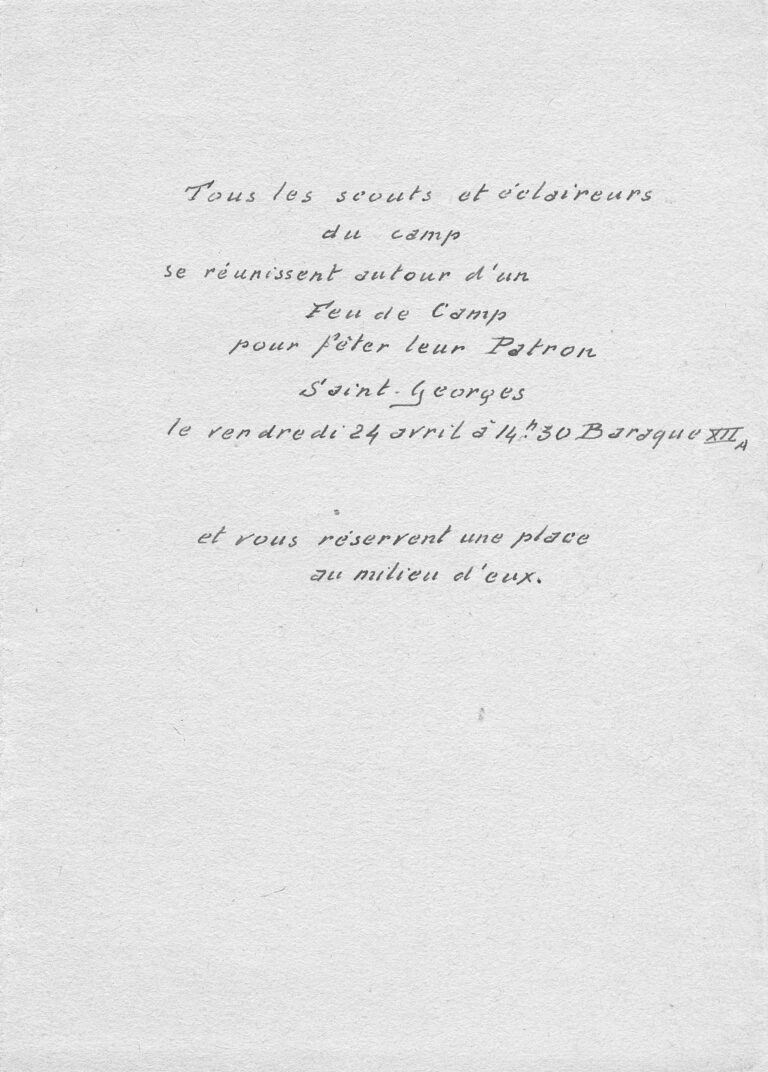 Tous les scouts et éclaireurs
du camp
se réunissent autour d'un
Feu de Camp
pour fêter leur Patron
Saint-Georges
le vendredi 24 avril à 14h.30 Baraque XII A
et vous réservent une place
au milieu d'eux.